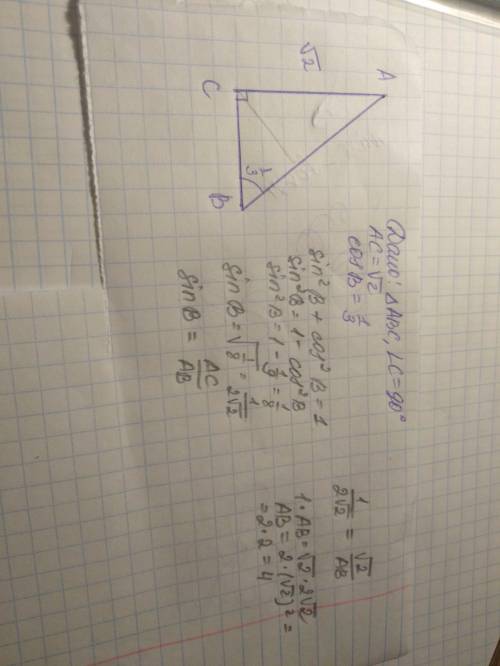 A
√2
C
B
1/3
Дано: △ABC, ∠C=90°
AC=√2
cos B = 1/3
sin² B + cos² B = 1
sin² B = 1 - cos² B
sin² B = 1 - 1/9 = 1/8
sin B = √1/8 = 1/2√2
sin B = AC/AB
1/2√2 = √2/AB
1·AB = √2·2√2
AB = 2·(√2)² =
= 2·2 = 4